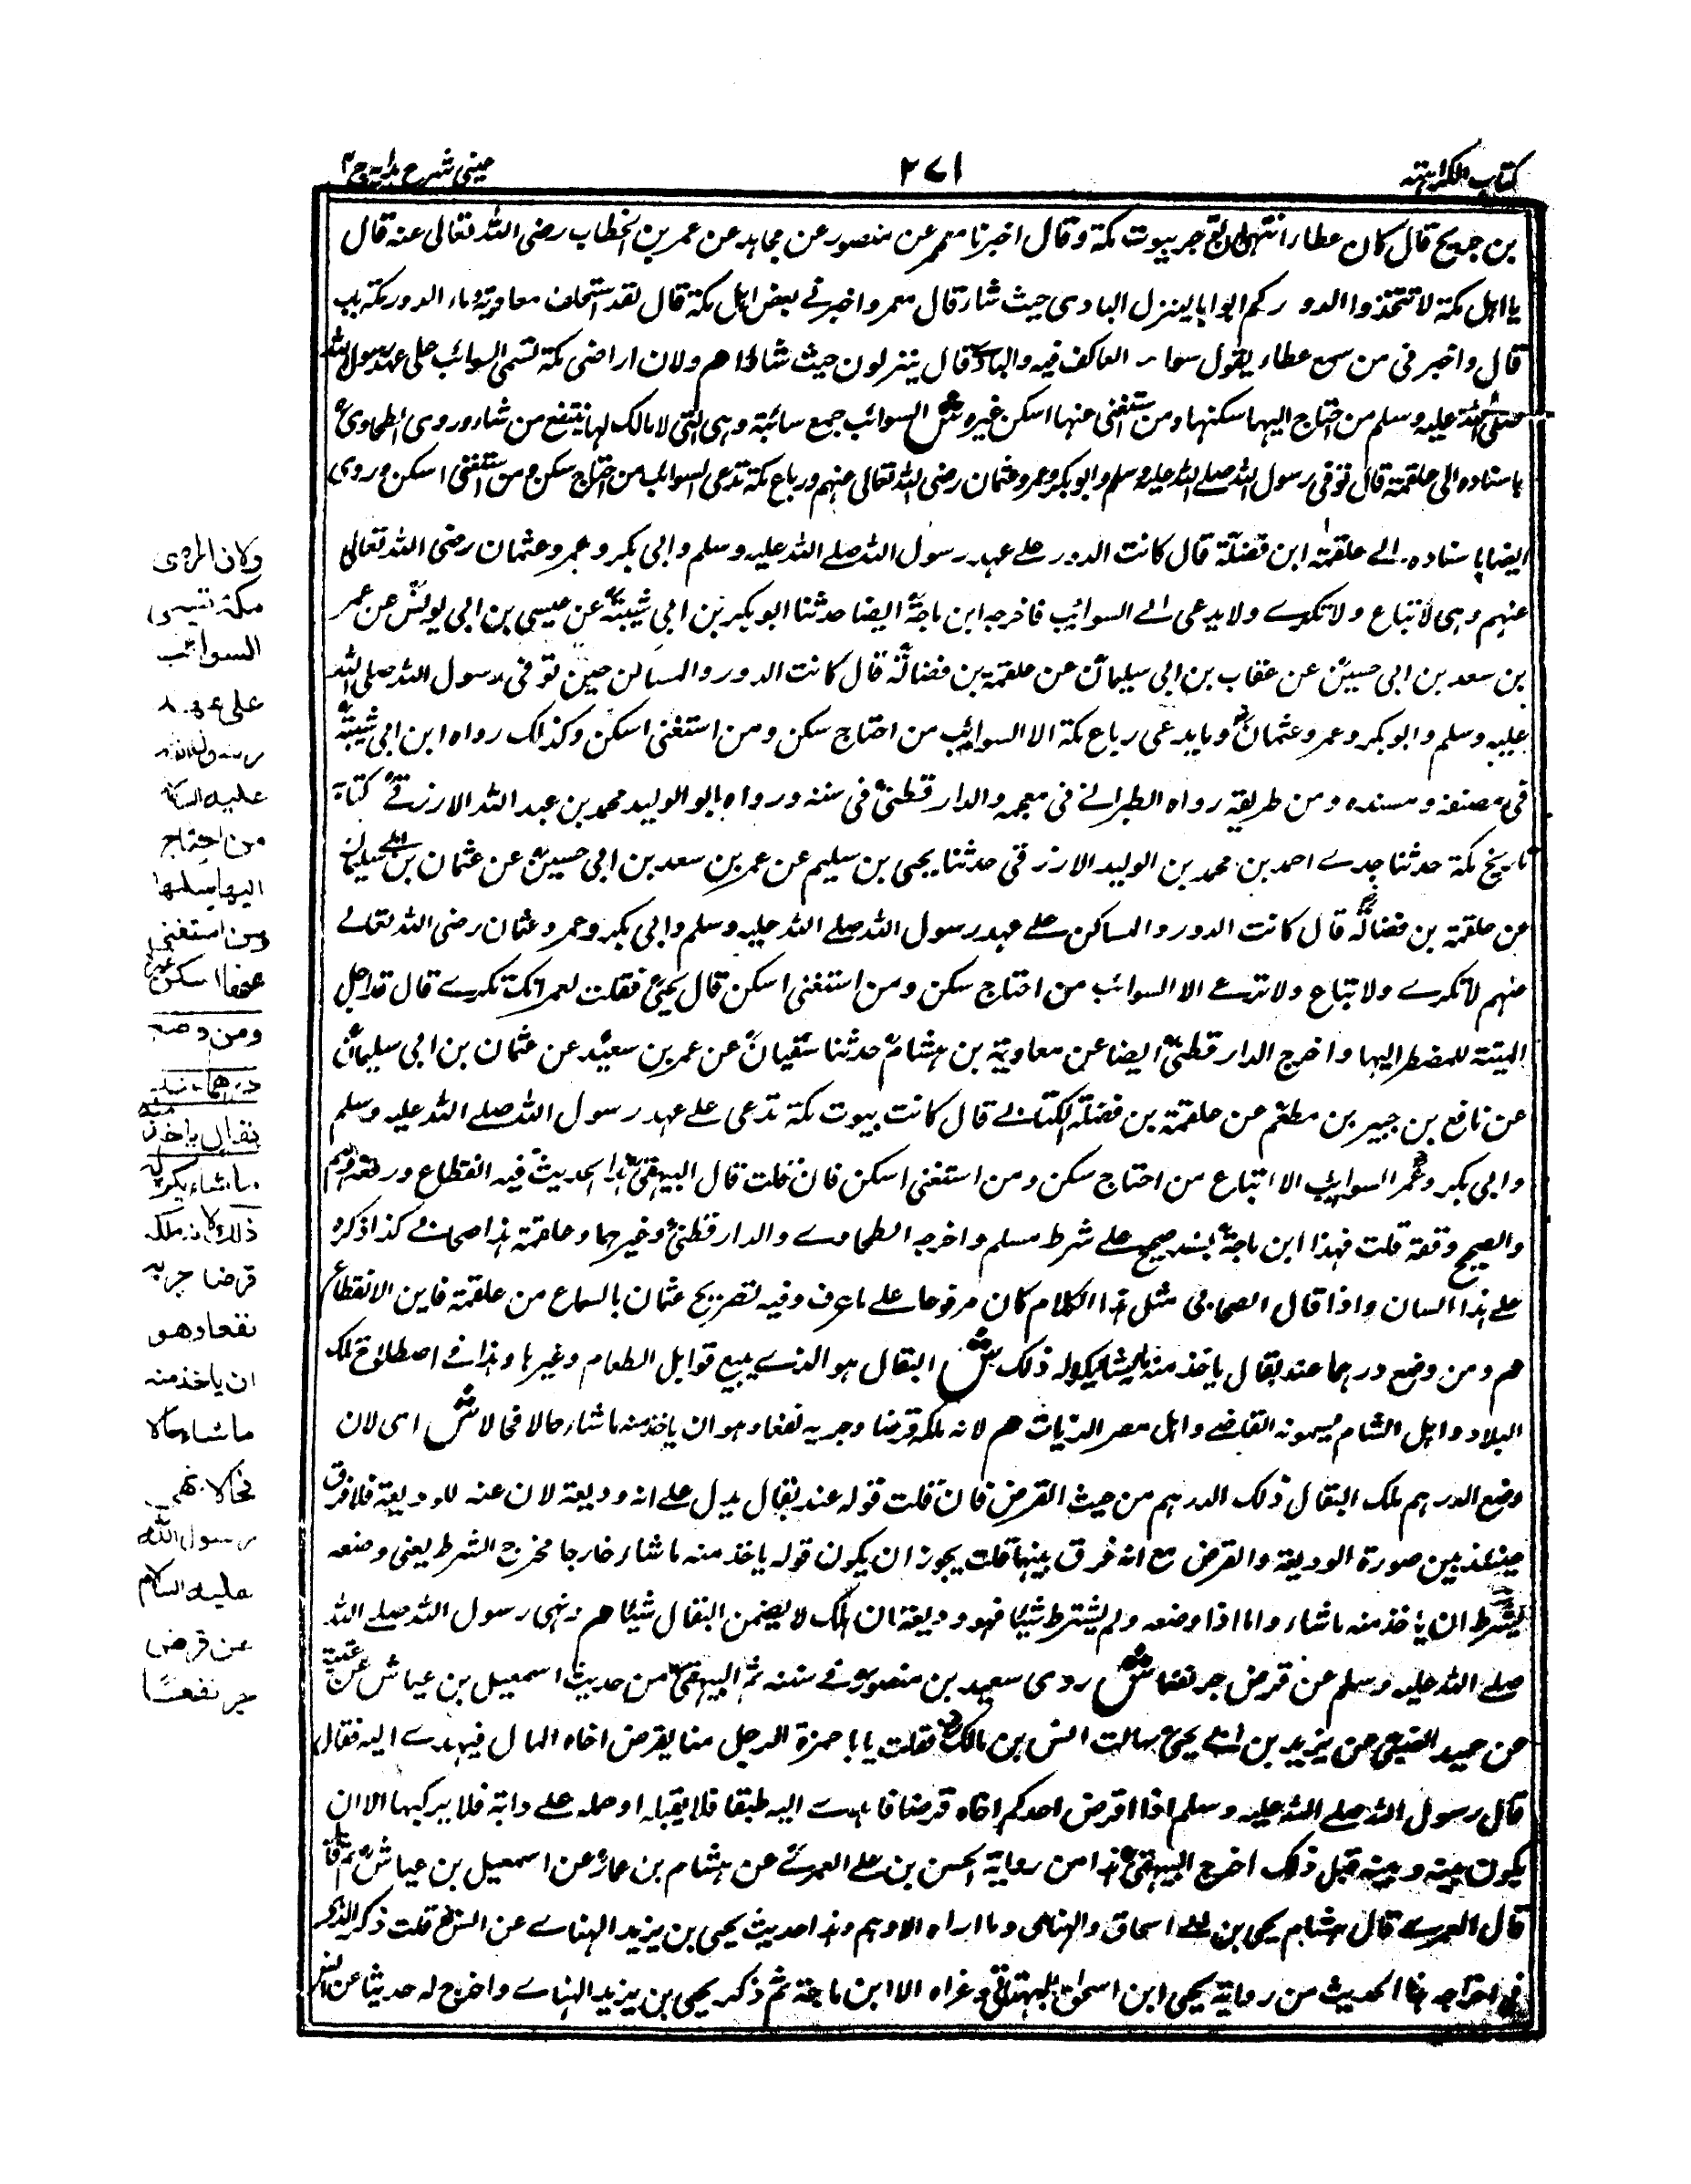 كتاب الكراهية
٢٧١
عينى شرح هدايه ج ٤
بن جريج قال كان عطاء ينهى عن بيوت مكة وقال اخبرنا معمر عن منصور عن مجاهد عن عمر بن الخطاب رضى الله تعالى عنه قال
يا اهل مكة لا تتخذوا لدوركم ابوابا لينزل البادى حيث شاء قال معمر واخبرنى بعض اهل مكة قال لقد استخلف معاوية وما لدور مكة باب
قال واخبرنى من سمع عطاء يقول سواء العاكف فيه والباد قال ينزلون حيث شاؤا هم ولان اراضى مكة تسمى السوائب على عهد رسول الله
صلى الله عليه وسلم من احتاج اليها سكنها ومن استغنى عنها اسكن غيره ش السوائب جمع سائبة وهى التى لا مالك لها ينتفع من شاء وروى الطحاوى
باسناده الى علقمة قال توفى رسول الله صلے الله عليه وسلم وابو بكر وعمر وعثمان رضى الله تعالى عنهم ورباع مكة تدعى السوائب من احتاج سكن ومن استغنى اسكن وروى
ايضا باسناده الے علقمة ابن نضلة قال كانت الدور علے عهد رسول الله صلے الله عليه وسلم وابى بكر وعمر وعثمان رضى الله تعالى
عنهم وهى لا تباع ولا تكرے ولا يدعى الے السوائب فاخرجه ابن ماجة ايضا حدثنا ابو بكر بن ابي شيبة عن عيسى بن ابى يونس عن عمر
بن سعد بن ابى حسين عن عفاب بن ابى سليمان عن علقمة بن فضالة قال كانت الدور والمساكن حين توفى رسول الله صلى الله
عليه وسلم وابو بكر وعمر وعثمان وما يدعى رباع مكة الا السوائب من احتاج سكن ومن استغنى اسكن وكذلك رواه ابن ابى شيبة
فى مصنفه ومسنده ومن طريقه رواه الطبرانے فى معجمه والدارقطنى فى سننه ورواه ابو الوليد محمد بن عبد الله الازرقے كتابة
تاريخ مكة حدثنا جدے احمد بن محمد بن الوليد الازرقى حدثنا يحيى بن سليم عن عمر بن سعد بن ابى حسين عن عثمان بن ابى سليمان
عن علقمة بن فضالة قال كانت الدور والمساكن علے عهد رسول الله صلے الله عليه وسلم وابى بكر وعمر وعثمان رضى الله تعالے
عنهم لا تكرے ولا تباع ولا تدعے الا السوائب من احتاج سكن ومن استغنى اسكن قال يحيى فقلت لعمر انك تكرے قال قد احل
الميتة للمضطر اليها واخرج الدارقطنى ايضا عن معاوية بن هشام حدثنا سفيان عن عمر بن سعيد عن عثمان بن ابى سليمان
عن نافع بن جبير بن مطعم عن علقمة بن فضلة الكنانے قال كانت بيوت مكة تدعى علے عهد رسول الله صلے الله عليه وسلم
وابى بكر وعمر السوائب الا تباع من احتاج سكن ومن استغنى اسكن فان قلت قال البيهقى هذا الحديث فيه انقطاع ورفعه وهم
والصحيح وقفه قلت فهذا ابن ماجة بسند صحيح علے شرط مسلم واخرجه الطحاوے والدارقطنى وغيرهما وعلقمة هذا صحابے كذا ذكره
علے هذا اللسان واذا قال الصحابى مثل هذا الكلام كان مرفوعا علے ما عرف وفيه تصريح عثمان بالسماع من علقمة فاين الانقطاع
هم ومن وضع درهما عند بقال ياخذ منه ما يشاء يكره له ذلك ش البقال هو الذے يبيع قوابل الطعام وغيرها وهذا فے اصطلاح تلك
البلاد واهل الشام يسمونه القاضے واهل مصر الزيات هم لانه ملكه قرضا وجر به نفعا وهو ان ياخذ منه ما شاء حالا فحالا ش اى لان
وضع الدرهم ملك البقال ذلك الدرهم من حيث القرض فان قلت قوله عند بقال يدل علے انه وديعة لان عنه للوديعة فلا فرق
حينئذ بين صورة الوديعة والقرض مع انه فرق بينهما قلت يجوز ان يكون قوله ياخذ منه ما شاء خارجا مخرج الشرط يعنى وضعه
بشرط ان ياخذ منه ما شاء واما اذا وضعه ولم يشترط شيئا فهو وديعة ان هلك لا يضمن البقال شيئا هم ونهى رسول الله صلے الله
صلے الله عليه وسلم عن قرض جر نفعا ش روى سعيد بن منصور فے سننه ثم البيهقى من حديث اسمعيل بن عياش عن عتبة
عن حميد الضبى عن يزيد بن ابے يحيى سالت انس بن مالك فقلت يا ابا حمزة الرجل منا يقرض اخاه المال فيهدے اليه فقال
قال رسول الله صلے الله عليه وسلم اذا اقرض احدكم اخاه قرضا فاهدے اليه طبقا فلا يقبله او حمله علے دابة فلا يركبها الا ان
يكون بينه وبينه قبل ذلك اخرج البيهقى هذا من رواية الحسن بن علے العمرے عن هشام بن عمار عن اسمعيل بن عياش ثم قال
قال العمرے قال هشام يحيى بن ابے اسحاق والهنائى وما اراه الا وهم وهذا حديث يحيى بن يزيد الهنائے عن انس قلت ذكر المذكر
فى اخراجه هذا الحديث من رواية يحيى ابن اسحاق الهنائى وعزاه الا ابن ماجة ثم ذكر يحيى بن يزيد الهنائے واخرج له حديثا عن انس
ولان اراضى
مكة تسمى
السوائب
على عهد
رسول الله
عليه السلام
من احتاج
اليها سكنها
ومن استغنى
عنها اسكن غيره
ومن وضع
درهما عند
بقال ياخذ منه
ما شاء يكره له
ذلك لانه ملكه
قرضا جر به
نفعا وهو
ان ياخذ منه
ما شاء حالا
فحالا ونهى
رسول الله
عليه السلام
عن قرض
جر نفعا